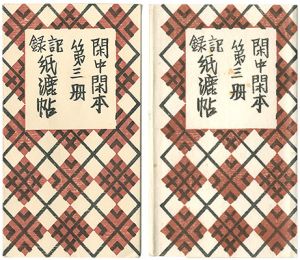 閑中閑本
第三册
記録紙漉帖
閑中閑本
第三册
記録紙漉帖